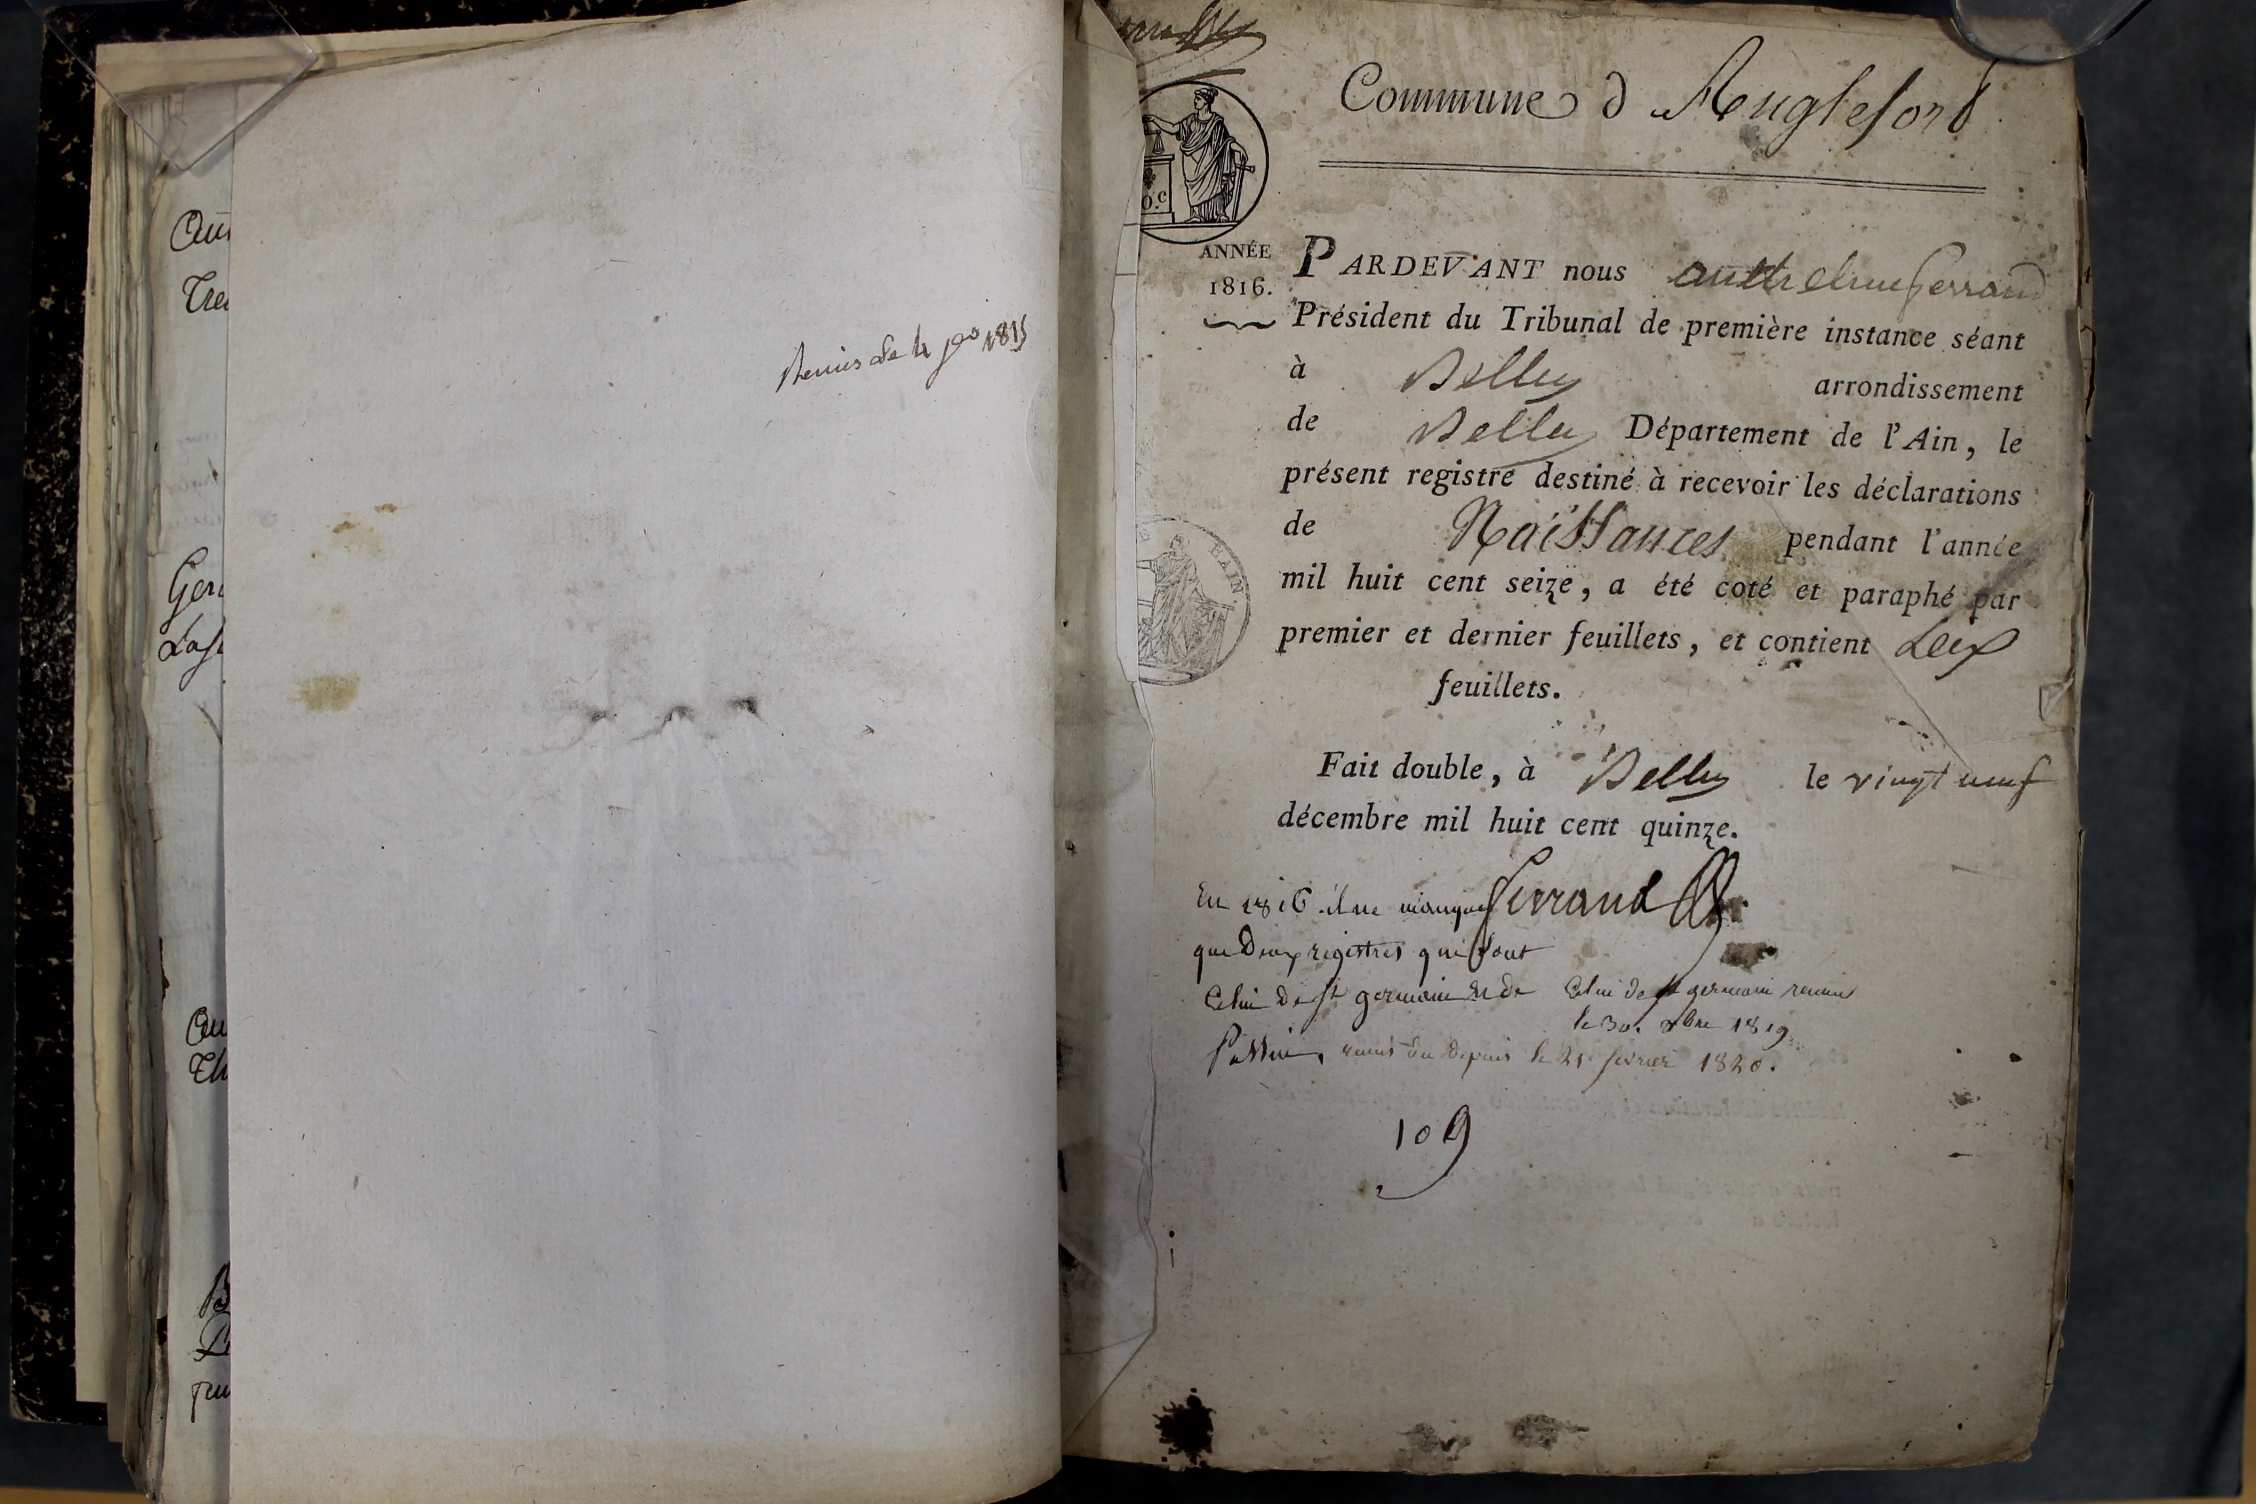 Aui
Tre
Ger
Las
Remis le 4 jer 1815
Commune d'Anglefort
ANNÉE
1816.
PARDEVANT nous anthelme ferrand
Président du Tribunal de première instance séant
à Belley arrondissement
de Belley Département de l'Ain, le
présent registre destiné à recevoir les déclarations
de Naissances pendant l'année
mil huit cent seize, a été coté et paraphé par
premier et dernier feuillets, et contient
feuillets.
Fait double, à Belley le vingt neuf
décembre mil huit cent quinze.
ferrand
En 1816 il ne manque
que Deux registres qui sont
Celui De St germain et de
Celui de St germain remis
le 30. xbre 1819
remis Depuis le 21 fevrier 1820.
109